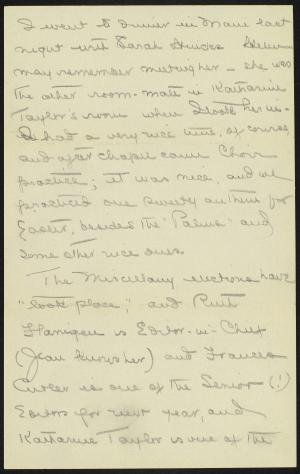 I went to dinner in Main last
night with Sarah Hincks. Helen
may remember meeting her – she was
the other room-mate in Katharine
Taylor's room when I took her in.
I had a very nice time, of course,
and after chapel came Choir
practice; it was nice, and we
practiced one pretty anthem for
Easter, besides the "Palms" and
some other nice ones.
The Miscellany elections have
"took place," and Ruth
Flanigen is Editor-in-Chief
(Jean knows her) and Frances
Cutler is one of the Senior (!)
Editors for next year, and
Katharine Taylor is one of the